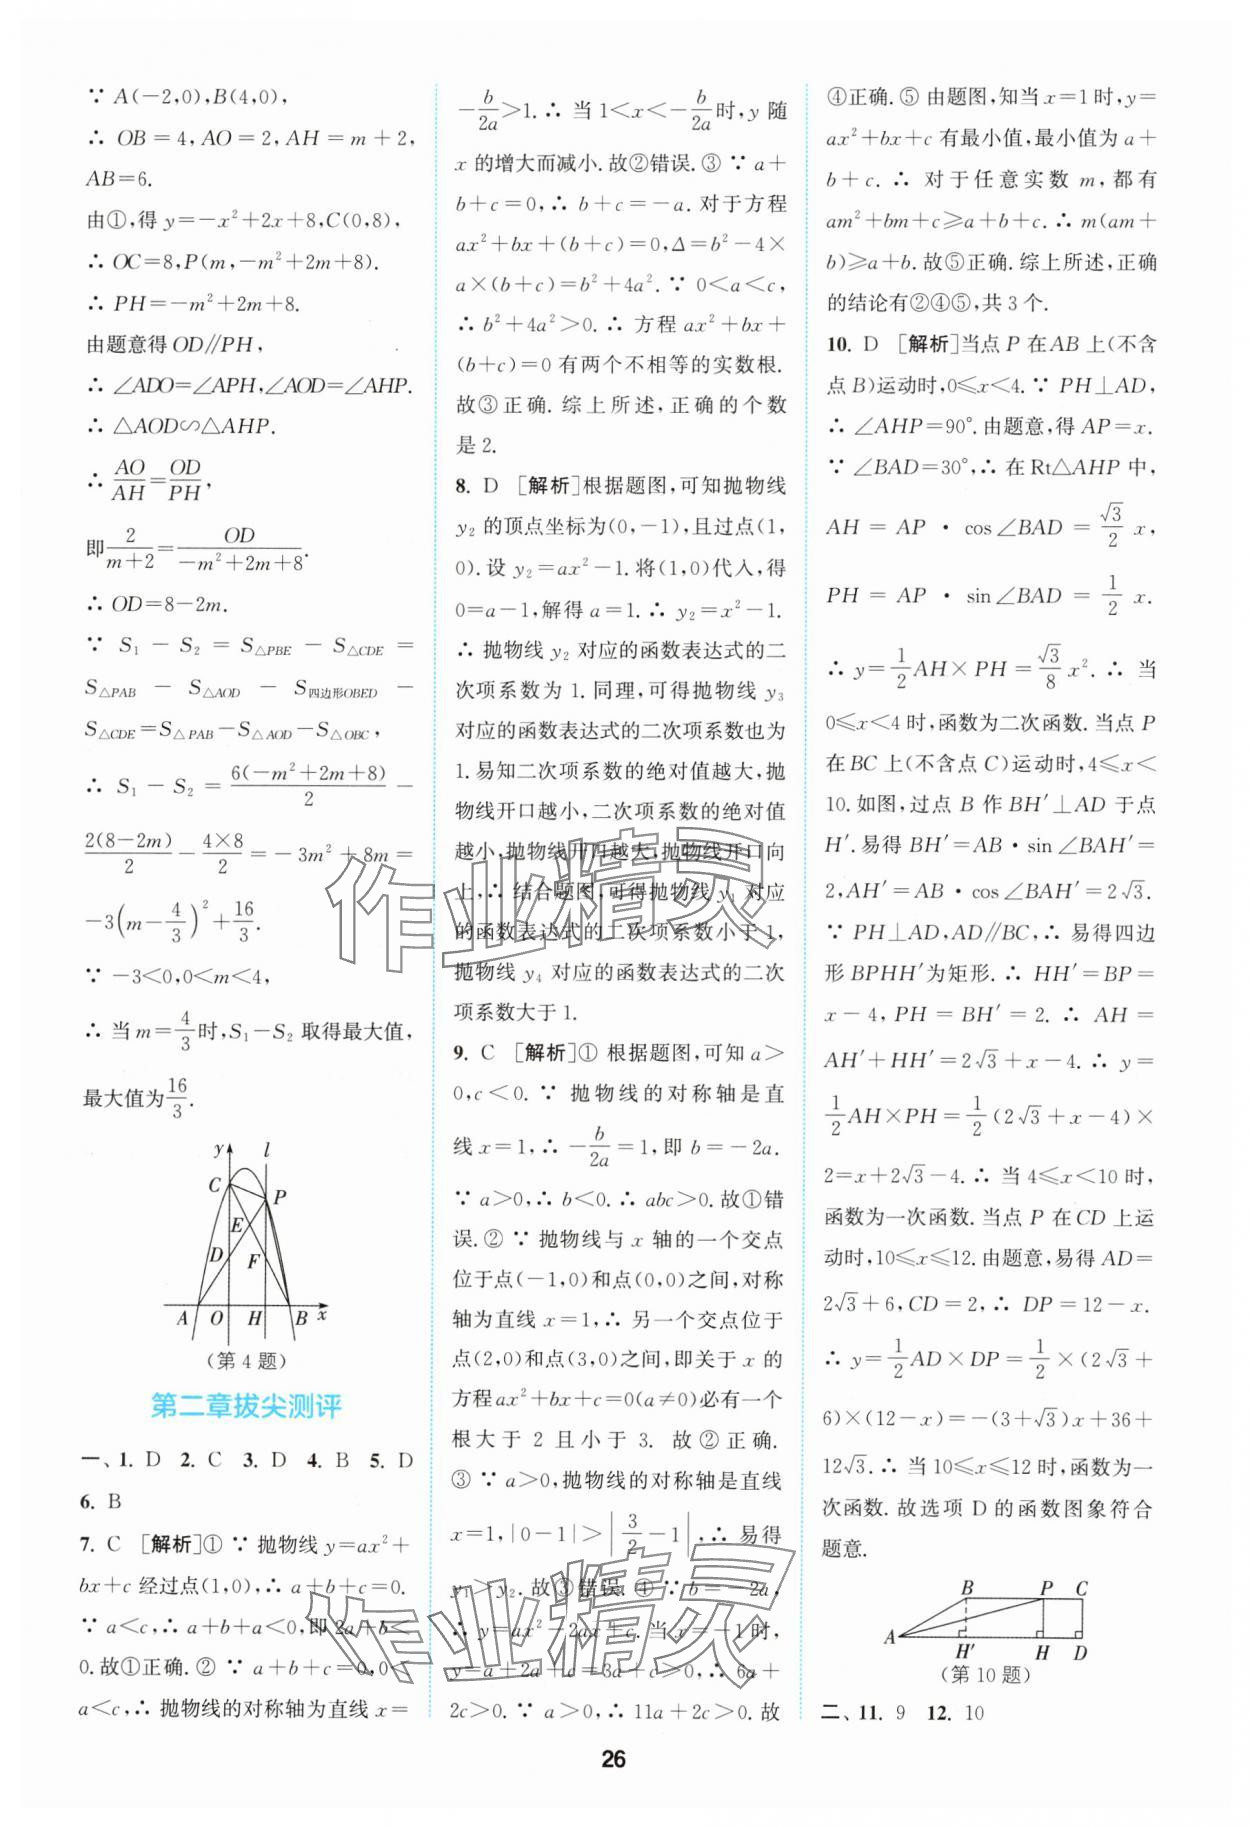 ∵ A(−2,0),B(4,0),
∴ OB=4,AO=2,AH=m+2,
AB=6.
由①,得 y=−x²+2x+8,C(0,8),
∴ OC=8,P(m,−m²+2m+8).
∴ PH=−m²+2m+8.
由题意得 OD∥PH,
∴ ∠ADO=∠APH,∠AOD=∠AHP.
∴ △AOD∽△AHP.
∴ AO/AH=OD/PH,
即2/(m+2)=OD/(−m²+2m+8).
∴ OD=8−2m.
∵ S₁−S₂=S△PBE−S△CDE=
S△PAB−S△AOD−S四边形OBED−
S△CDE=S△PAB−S△AOD−S△OBC,
∴ S₁−S₂=6(−m²+2m+8)/2−
2(8−2m)/2−4×8/2=−3m²+8m=
−3(m−4/3)²+16/3.
∵ −3<0,0<m<4,
∴ 当 m=4/3时,S₁−S₂ 取得最大值,
最大值为16/3.
y l
C P
E
D F
A O H B x
(第 4 题)
第二章拔尖测评
一、1. D 2. C 3. D 4. B 5. D
6. B
7. C [解析]① ∵ 抛物线 y=ax²+
bx+c 经过点(1,0),∴ a+b+c=0.
∵ a<c,∴ a+b+a<0,即 2a+b<
0.故①正确.② ∵ a+b+c=0,0<
a<c,∴ 抛物线的对称轴为直线 x=
−b/2a>1.∴ 当 1<x<−b/2a时,y 随
x 的增大而减小.故②错误.③ ∵ a+
b+c=0,∴ b+c=−a.对于方程
ax²+bx+(b+c)=0,Δ=b²−4×
a×(b+c)=b²+4a².∵ 0<a<c,
∴ b²+4a²>0.∴ 方程 ax²+bx+
(b+c)=0 有两个不相等的实数根.
故③正确.综上所述,正确的个数
是 2.
8. D [解析]根据题图,可知抛物线
y₂ 的顶点坐标为(0,−1),且过点(1,
0).设 y₂=ax²−1.将(1,0)代入,得
0=a−1,解得 a=1.∴ y₂=x²−1.
∴ 抛物线 y₂ 对应的函数表达式的二
次项系数为 1.同理,可得抛物线 y₃
对应的函数表达式的二次项系数也为
1.易知二次项系数的绝对值越大,抛
物线开口越小,二次项系数的绝对值
越小,抛物线开口越大,抛物线开口向
上,∴ 结合题图,可得抛物线 y₁ 对应
的函数表达式的二次项系数小于 1,
抛物线 y₄ 对应的函数表达式的二次
项系数大于 1.
9. C [解析]① 根据题图,可知 a>
0,c<0.∵ 抛物线的对称轴是直
线 x=1,∴ −b/2a=1,即 b=−2a.
∵ a>0,∴ b<0.∴ abc>0.故①错
误.② ∵ 抛物线与 x 轴的一个交点
位于点(−1,0)和点(0,0)之间,对称
轴为直线 x=1,∴ 另一个交点位于
点(2,0)和点(3,0)之间,即关于 x 的
方程 ax²+bx+c=0(a≠0)必有一个
根大于 2 且小于 3. 故②正确.
③ ∵ a>0,抛物线的对称轴是直线
x=1,|0−1|>|3/2−1|,∴ 易得
y₁>y₂.故③错误.④ ∵ b=−2a,
∴ y=ax²−2ax+c.当 x=−1时,
y=a+2a+c=3a+c>0,∴ 6a+
2c>0.∵ a>0,∴ 11a+2c>0.故
④正确.⑤ 由题图,知当 x=1时,y=
ax²+bx+c 有最小值,最小值为 a+
b+c.∴ 对于任意实数 m,都有
am²+bm+c≥a+b+c.∴ m(am+
b)≥a+b.故⑤正确.综上所述,正确
的结论有②④⑤,共 3 个.
10. D [解析]当点 P 在 AB 上(不含
点 B)运动时,0≤x<4.∵ PH⊥AD,
∴ ∠AHP=90°.由题意,得 AP=x.
∵ ∠BAD=30°,∴ 在 Rt△AHP 中,
AH=AP·cos∠BAD=√3/2 x,
PH=AP·sin∠BAD=1/2 x.
∴ y=1/2AH×PH=√3/8 x².∴ 当
0≤x<4 时,函数为二次函数.当点 P
在 BC 上(不含点 C)运动时,4≤x<
10.如图,过点 B 作 BH′⊥AD 于点
H′.易得 BH′=AB·sin∠BAH′=
2,AH′=AB·cos∠BAH′=2√3.
∵ PH⊥AD,AD∥BC,∴ 易得四边
形 BPHH′为矩形.∴ HH′=BP=
x−4,PH=BH′=2.∴ AH=
AH′+HH′=2√3+x−4.∴ y=
1/2AH×PH=1/2(2√3+x−4)×
2=x+2√3−4.∴ 当 4≤x<10 时,
函数为一次函数.当点 P 在 CD 上运
动时,10≤x≤12.由题意,易得 AD=
2√3+6,CD=2,∴ DP=12−x.
∴ y=1/2AD×DP=1/2×(2√3+
6)×(12−x)=−(3+√3)x+36+
12√3.∴ 当 10≤x≤12 时,函数为一
次函数.故选项 D 的函数图象符合
题意.
B P C
A H′ H D
(第 10 题)
二、11. 9 12. 10
作业精灵
作业精灵
26